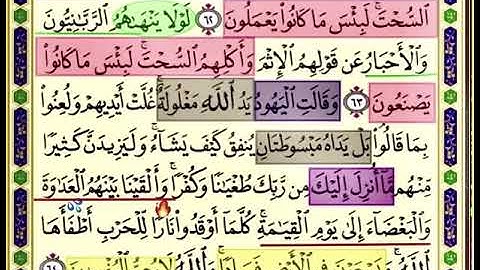 ٱلسُّحْتَۚ لَبِئْسَ مَا كَانُوا۟ يَعْمَلُونَ ٦٢ لَوْلَا يَنْهَىٰهُمُ ٱلرَّبَّـٰنِيُّونَ
وَٱلْأَحْبَارُ عَن قَوْلِهِمُ ٱلْإِثْمَ وَأَكْلِهِمُ ٱلسُّحْتَۚ لَبِئْسَ مَا كَانُوا۟
يَصْنَعُونَ ٦٣ وَقَالَتِ ٱلْيَهُودُ يَدُ ٱللَّهِ مَغْلُولَةٌۚ غُلَّتْ أَيْدِيهِمْ وَلُعِنُوا۟
بِمَا قَالُوا۟ۘ بَلْ يَدَاهُ مَبْسُوطَتَانِ يُنفِقُ كَيْفَ يَشَآءُۚ وَلَيَزِيدَنَّ كَثِيرًا
مِّنْهُم مَّآ أُنزِلَ إِلَيْكَ مِن رَّبِّكَ طُغْيَـٰنًا وَكُفْرًاۚ وَأَلْقَيْنَا بَيْنَهُمُ ٱلْعَدَٰوَةَ
وَٱلْبَغْضَآءَ إِلَىٰ يَوْمِ ٱلْقِيَـٰمَةِۚ كُلَّمَآ أَوْقَدُوا۟ نَارًا لِّلْحَرْبِ أَطْفَأَهَا
ٱللَّهُۚ وَيَسْعَوْنَ فِى ٱلْأَرْضِ فَسَادًاۚ وَٱللَّهُ لَا يُحِبُّ ٱلْمُفْسِدِينَ ٦٤